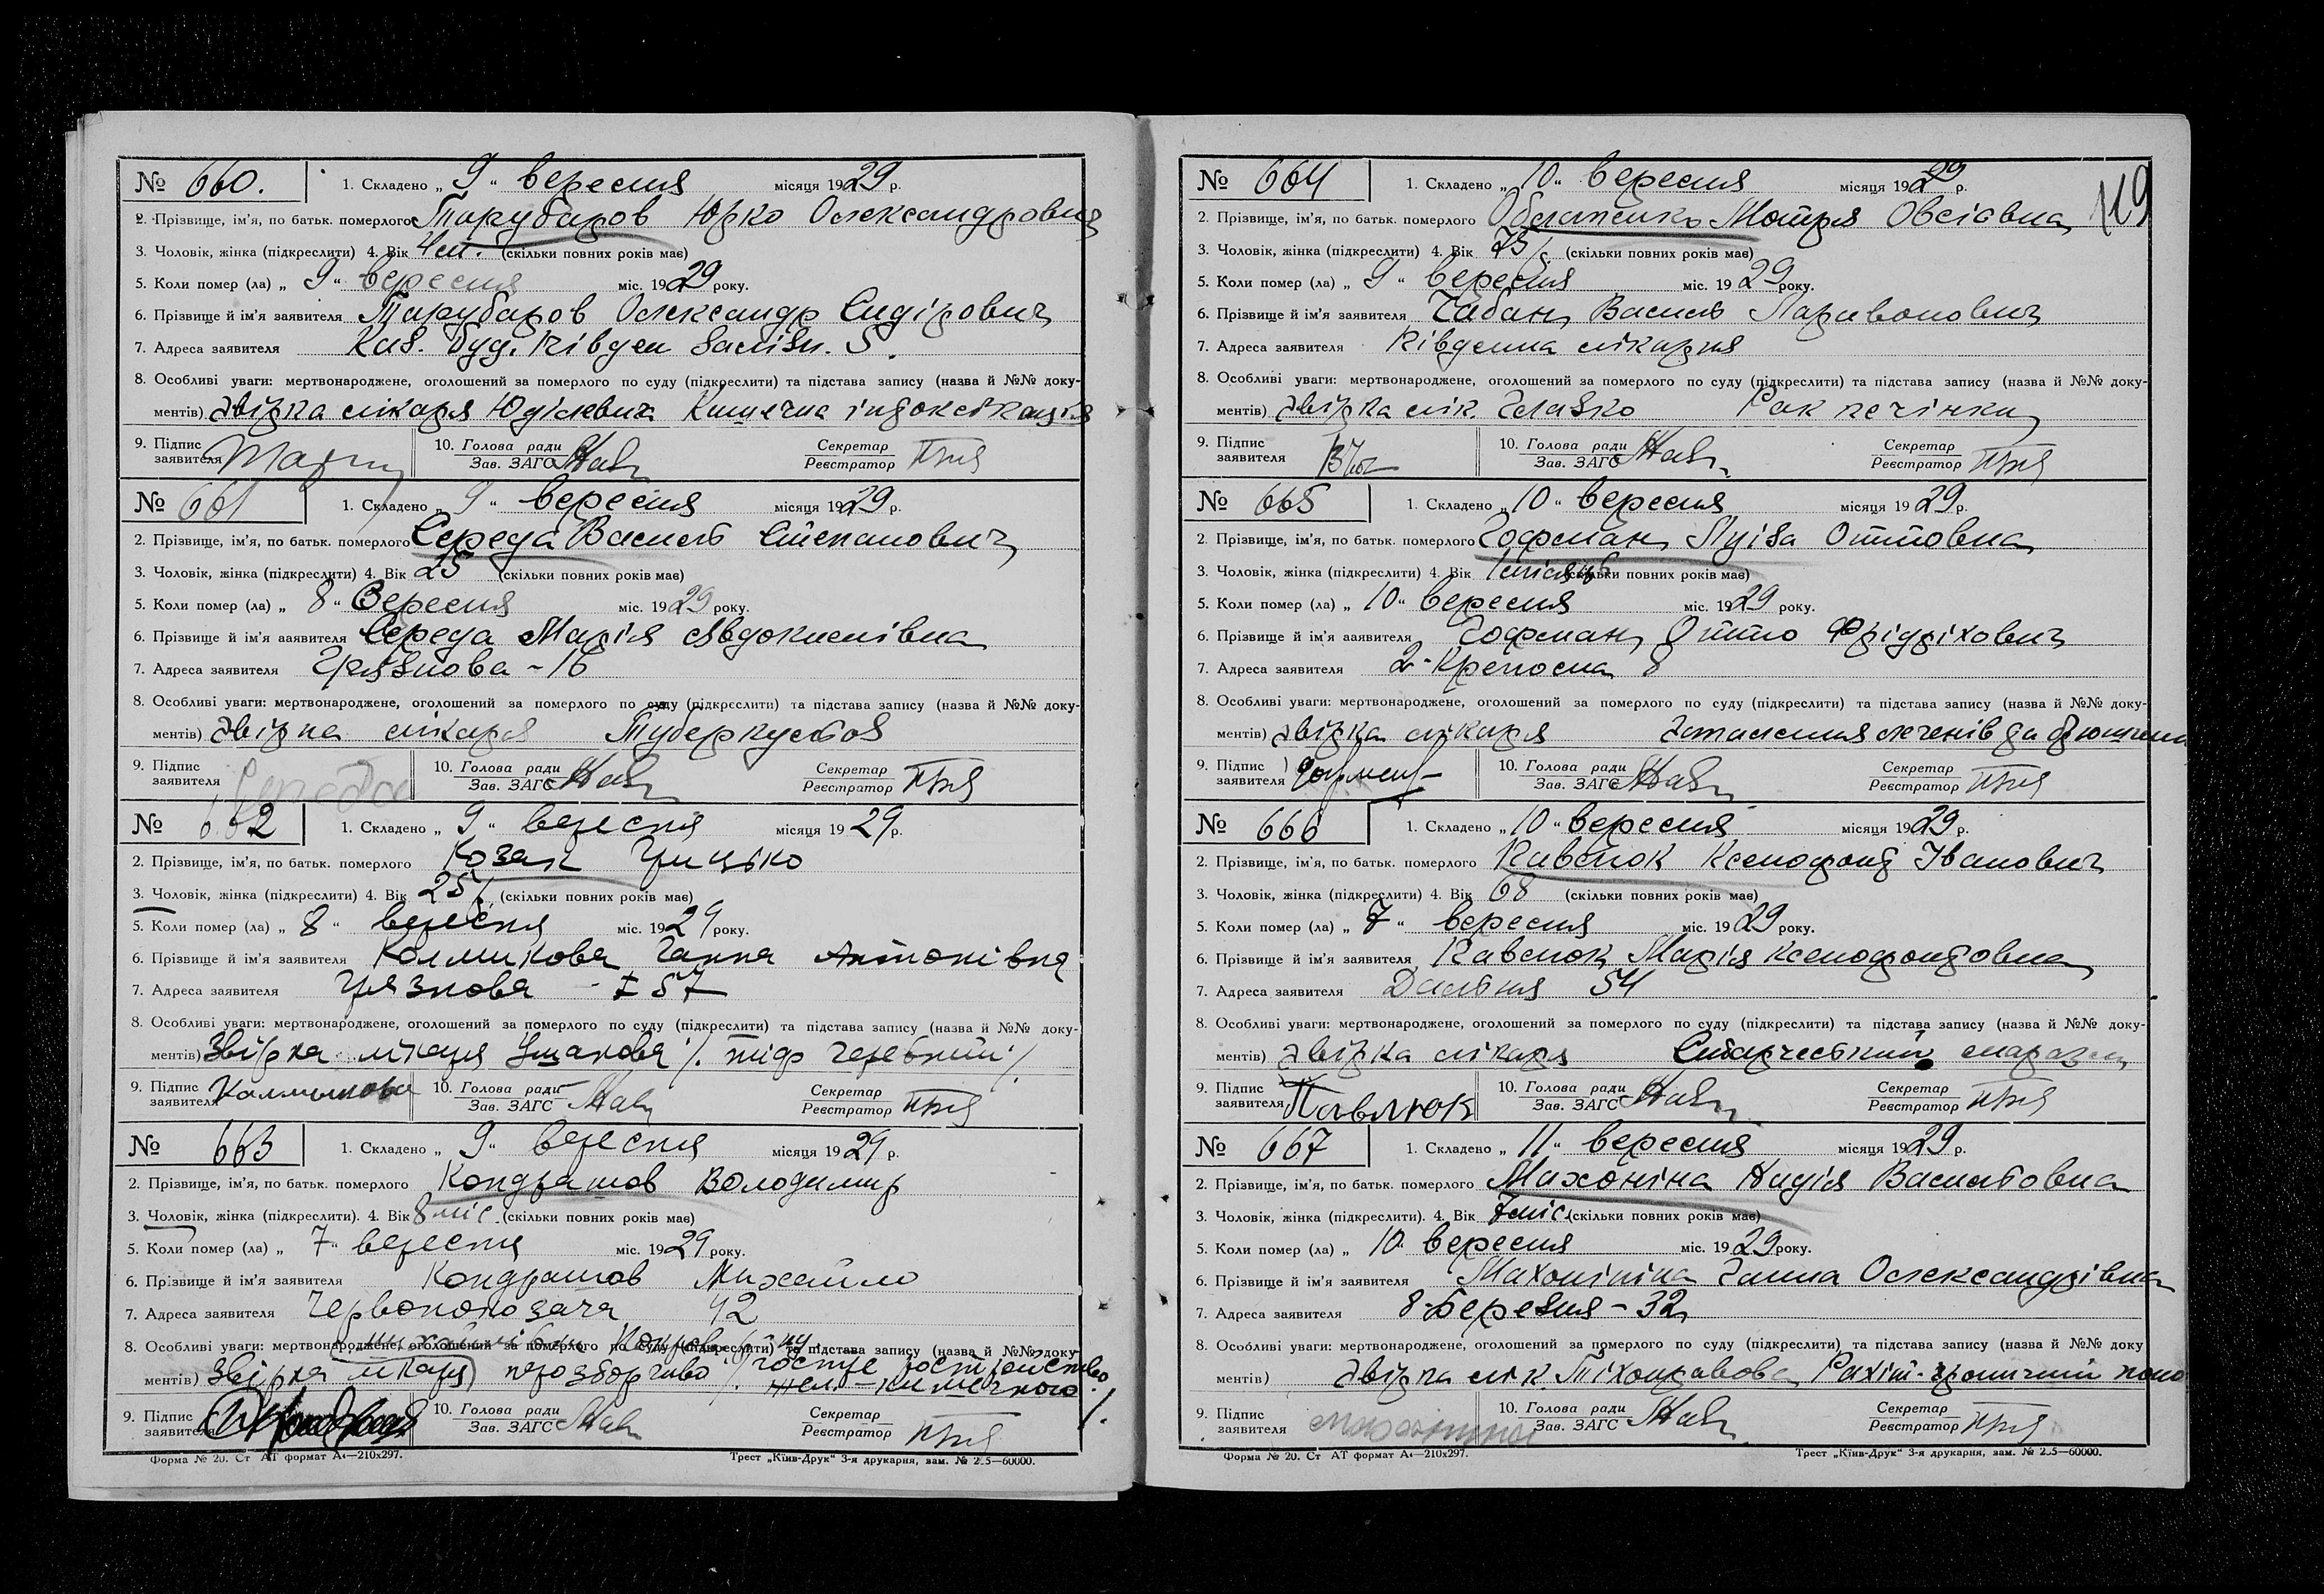 № 660. 1. Складено „ 9 “ вересня місяця 1929 р.
2. Прізвище, ім'я, по батьк. померлого Тарубаров Юрко Олександрович
3. Чоловік, жінка (підкреслити) 4. Вік (скільки повних років має)
5. Коли помер (ла) „ 9 “ вересня міс. 1929 року.
6. Прізвище й ім'я заявителя Тарубаров Олександр Сидірович
7. Адреса заявителя буд. Півден 5.
8. Особливі уваги: мертвонароджене, оголошений за померлого по суду (підкреслити) та підстава запису (назва й №№ доку-
ментів) звірка лікаря Юділевича Кишечна інтоксікація
9. Підпис заявителя 10. Голова ради Зав. ЗАГС Секретар Реєстратор
№ 661 1. Складено „ 9 “ вересня місяця 1929 р.
2. Прізвище, ім'я, по батьк. померлого Середа Василь Степанович
3. Чоловік, жінка (підкреслити) 4. Вік 25 (скільки повних років має)
5. Коли помер (ла) „ 8 “ Вересня міс. 1929 року.
6. Прізвище й ім'я заявителя Середа Марія Явдокимівна
7. Адреса заявителя Грязнова - 16
8. Особливі уваги: мертвонароджене, оголошений за померлого по суду (підкреслити) та підстава запису (назва й №№ доку-
ментів) звірка лікаря Туберкульоз
9. Підпис заявителя Середа 10. Голова ради Зав. ЗАГС Секретар Реєстратор
№ 662 1. Складено „ 9 “ вересня місяця 1929 р.
2. Прізвище, ім'я, по батьк. померлого Козак Грицько
3. Чоловік, жінка (підкреслити) 4. Вік 25 (скільки повних років має)
5. Коли помер (ла) „ 8 “ вересня міс. 1929 року.
6. Прізвище й ім'я заявителя Калмикова Ганна Антонівна
7. Адреса заявителя Грязнова - 57
8. Особливі уваги: мертвонароджене, оголошений за померлого по суду (підкреслити) та підстава запису (назва й №№ доку-
ментів) звірка лікаря Ушакова /. тіф черевний /.
9. Підпис заявителя Калмыкова 10. Голова ради Зав. ЗАГС Секретар Реєстратор
№ 663 1. Складено „ 9 “ вересня місяця 1929 р.
2. Прізвище, ім'я, по батьк. померлого Кондрашов Володимир
3. Чоловік, жінка (підкреслити). 4. Вік 8 міс. (скільки повних років має)
5. Коли помер (ла) „ 7 “ вересня міс. 1929 року.
6. Прізвище й ім'я заявителя Кондрашов Михайло
7. Адреса заявителя Червонокозача 42
8. Особливі уваги: мертвонароджене, оголошений за померлого по суду (підкреслити) та підстава запису (назва й №№ доку-
ментів) звірка лікаря нерозборчиво
9. Підпис заявителя 10. Голова ради Зав. ЗАГС Секретар Реєстратор
Форма № 20. Ст АТ формат А4—210x297. Трест „Київ-Друк“ 3-я друкарня, зам. № 2.5—60000.
119
№ 664 1. Складено „ 10 “ вересня місяця 1929 р.
2. Прізвище, ім'я, по батьк. померлого Мотря Овсіавна
3. Чоловік, жінка (підкреслити) 4. Вік 75 (скільки повних років має)
5. Коли помер (ла) „ 9 “ вересня міс. 1929 року.
6. Прізвище й ім'я заявителя Чабан Василь
7. Адреса заявителя Південна лікарня
8. Особливі уваги: мертвонароджене, оголошений за померлого по суду (підкреслити) та підстава запису (назва й №№ доку-
ментів) звірка лік. Рак печінки
9. Підпис заявителя 10. Голова ради Зав. ЗАГС Секретар Реєстратор
№ 665 1. Складено „ 10 “ вересня місяця 1929 р.
2. Прізвище, ім'я, по батьк. померлого Гофман Луіза Оттовна
3. Чоловік, жінка (підкреслити) 4. Вік 1 місяць (скільки повних років має)
5. Коли помер (ла) „ 10 “ вересня міс. 1929 року.
6. Прізвище й ім'я заявителя Гофман Отто Фрідріхович
7. Адреса заявителя 2-Крепосна 8
8. Особливі уваги: мертвонароджене, оголошений за померлого по суду (підкреслити) та підстава запису (назва й №№ доку-
ментів) звірка лікаря Запалення легенів
9. Підпис заявителя 10. Голова ради Зав. ЗАГС Секретар Реєстратор
№ 666 1. Складено „ 10 “ вересня місяця 1929 р.
2. Прізвище, ім'я, по батьк. померлого Павлюк Ксенофонт Іванович
3. Чоловік, жінка (підкреслити) 4. Вік 68 (скільки повних років має)
5. Коли помер (ла) „ 7 “ вересня міс. 1929 року.
6. Прізвище й ім'я заявителя Павлюк Марія Ксенофонтовна
7. Адреса заявителя Дальня 54
8. Особливі уваги: мертвонароджене, оголошений за померлого по суду (підкреслити) та підстава запису (назва й №№ доку-
ментів) звірка лікаря Старческий маразм
9. Підпис заявителя Павлюк 10. Голова ради Зав. ЗАГС Секретар Реєстратор
№ 667 1. Складено „ 11 “ вересня місяця 1929 р.
2. Прізвище, ім'я, по батьк. померлого Махоніна Надія Васильовна
3. Чоловік, жінка (підкреслити). 4. Вік 7 міс. (скільки повних років має)
5. Коли помер (ла) „ 10 вересня міс. 1929 року.
6. Прізвище й ім'я заявителя Махоніна Ганна Олександрівна
7. Адреса заявителя 8-Березня - 32
8. Особливі уваги: мертвонароджене, оголошений за померлого по суду (підкреслити) та підстава запису (назва й №№ доку
ментів) звірка лік. Тіхонравова Рахіт-хронічний
9. Підпис заявителя 10. Голова ради Зав. ЗАГС Секретар Реєстратор
Форма № 20. Ст АТ формат А4—210x297. Трест „Київ-Друк“ 3-я друкарня, зам. № 2.5—60000.